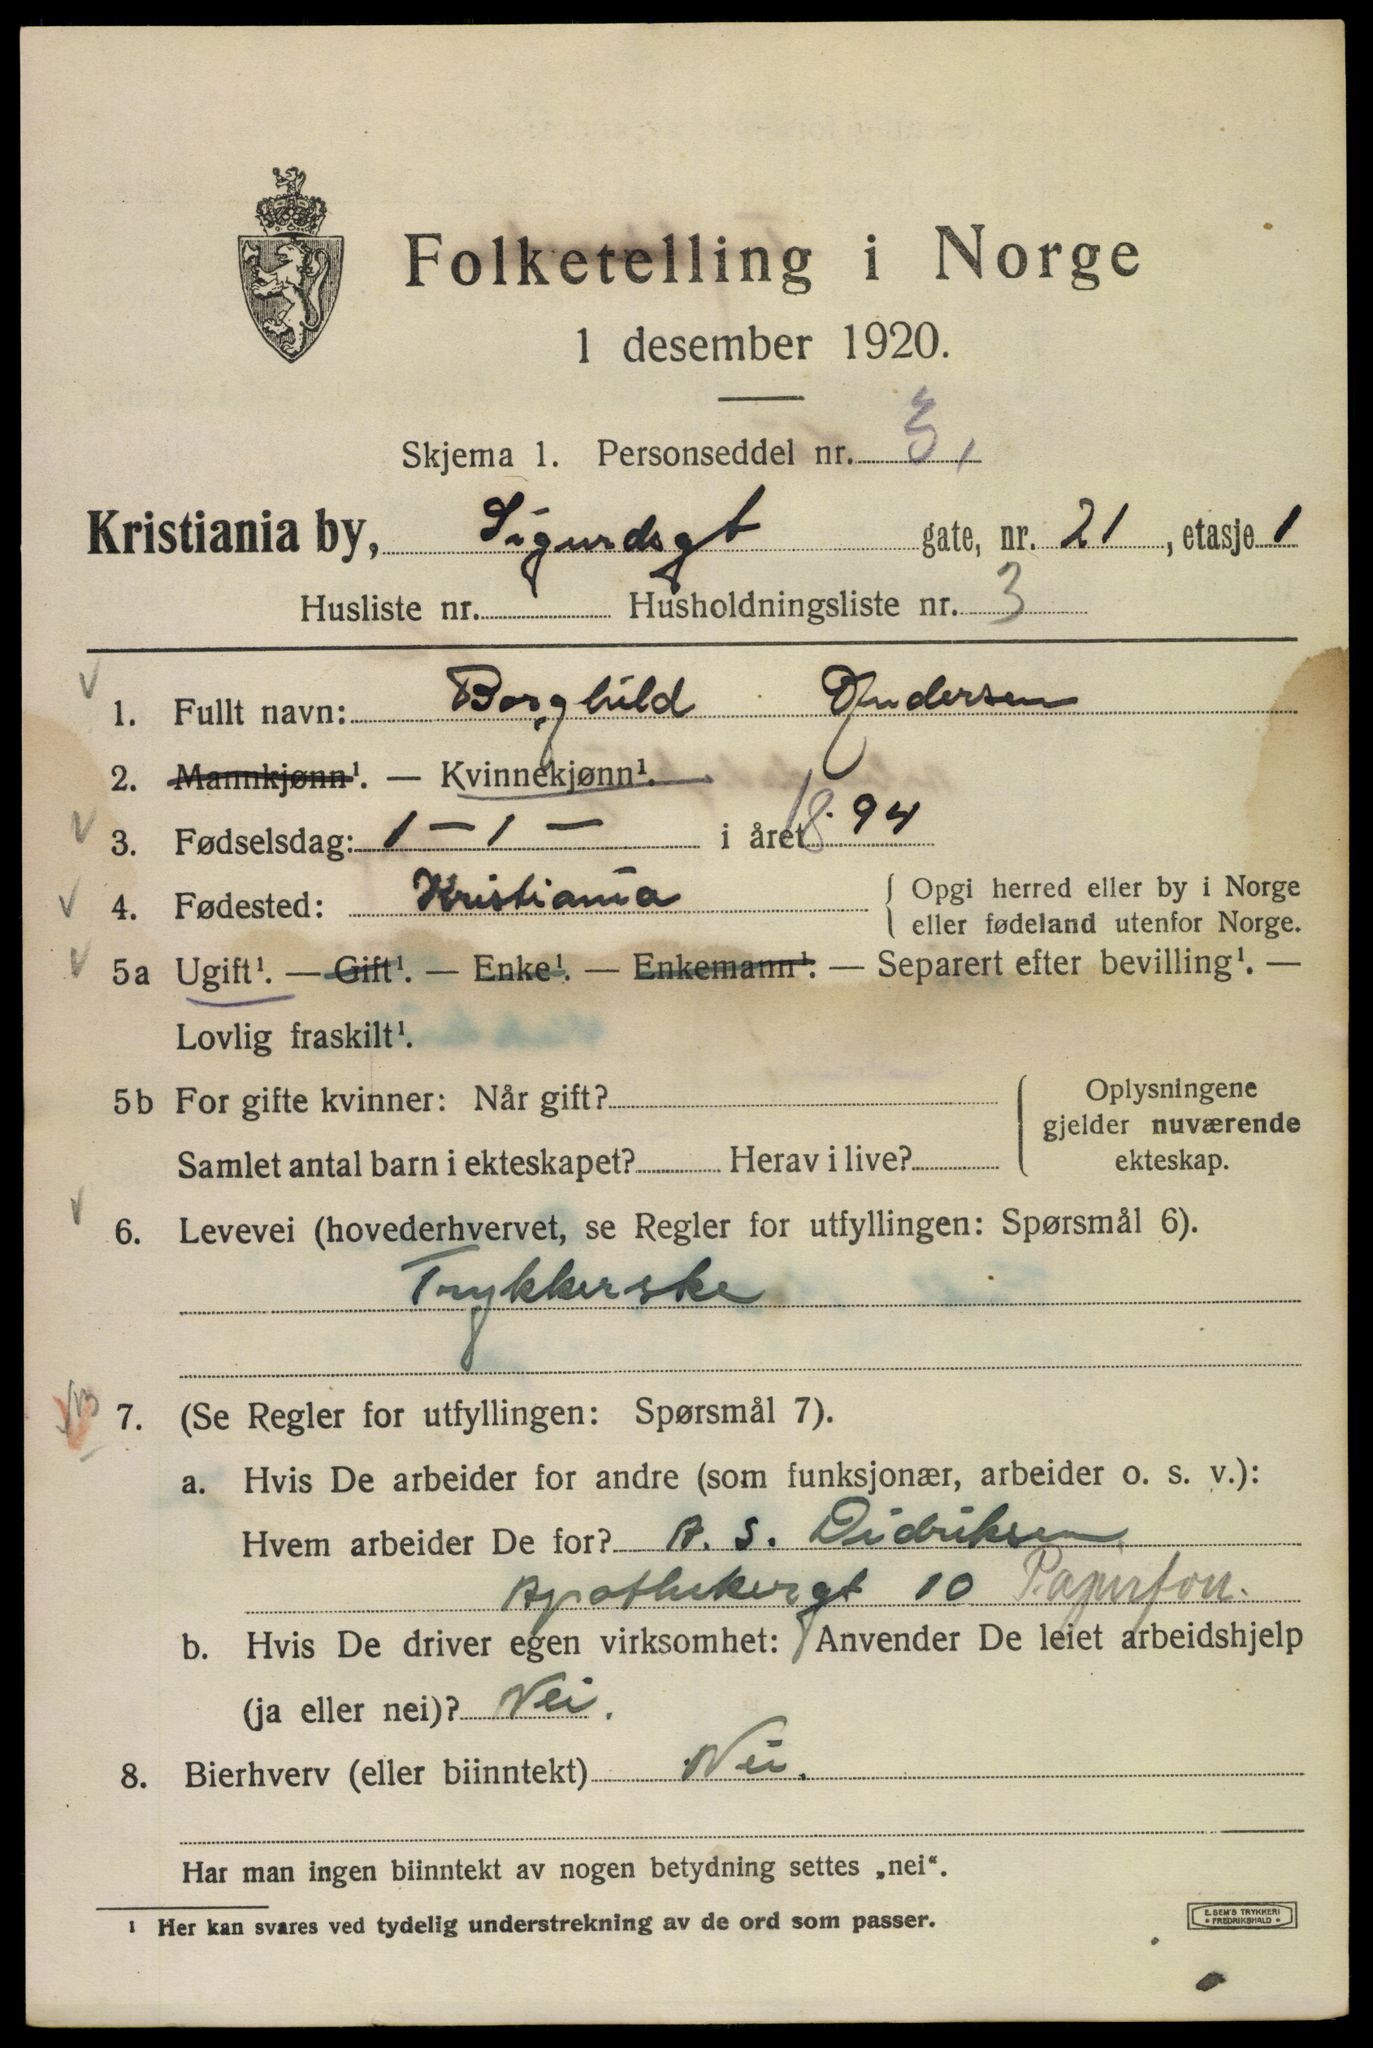 Folketelling i Norge
1 desember 1920.
Skjema 1. Personseddel nr. 3,
Kristiania by, Sigurdsgt gate, nr. 21, etasje 1
Husliste nr. Husholdningsliste nr. 3
1. Fullt navn: Borghild Andersen
2. Mannkjønn¹. — Kvinnekjønn¹.
3. Fødselsdag: 1 — 1 — i året 1894
4. Fødested: Kristiania { Opgi herred eller by i Norge
eller fødeland utenfor Norge.
5a Ugift¹. — Gift¹. — Enke¹. — Enkemann¹. — Separert efter bevilling¹. —
Lovlig fraskilt¹.
5b For gifte kvinner: Når gift?
Samlet antal barn i ekteskapet? Herav i live?
{ Oplysningene
gjelder nuværende
ekteskap.
6. Levevei (hovederhvervet, se Regler for utfyllingen: Spørsmål 6).
Trykkerske
7. (Se Regler for utfyllingen: Spørsmål 7).
a. Hvis De arbeider for andre (som funksjonær, arbeider o. s. v.):
Hvem arbeider De for? A. S. Didriksen
Apothekergt 10 Papirforr.
b. Hvis De driver egen virksomhet: Anvender De leiet arbeidshjelp
(ja eller nei)? Nei.
8. Bierhverv (eller biinntekt) Nei.
Har man ingen biinntekt av nogen betydning settes „nei“.
¹ Her kan svares ved tydelig understrekning av de ord som passer.
E. SEM'S TRYKKERI
• FREDRIKSHALD •